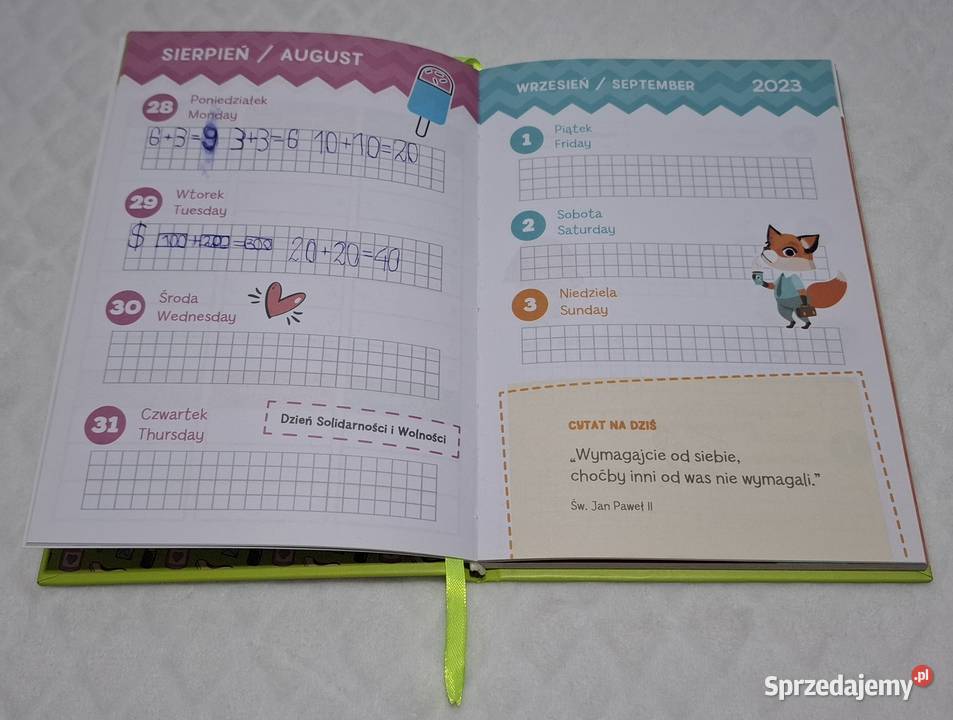 SIERPIEŃ / AUGUST
28 Poniedziałek
Monday
6+3=9 3+3=6 10+10=20
29 Wtorek
Tuesday
$ 100+200=300 20+20=40
30 Środa
Wednesday
31 Czwartek
Thursday
Dzień Solidarności i Wolności
WRZESIEŃ / SEPTEMBER 2023
1 Piątek
Friday
2 Sobota
Saturday
3 Niedziela
Sunday
CYTAT NA DZIŚ
„Wymagajcie od siebie,
choćby inni od was nie wymagali.”
Św. Jan Paweł II
Sprzedajemy.pl